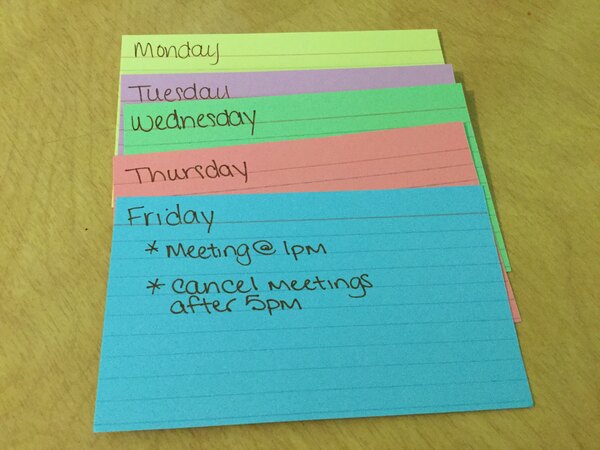 Monday
Tuesday
Wednesday
Thursday
Friday
* Meeting @ 1pm
* Cancel Meetings
after 5pm